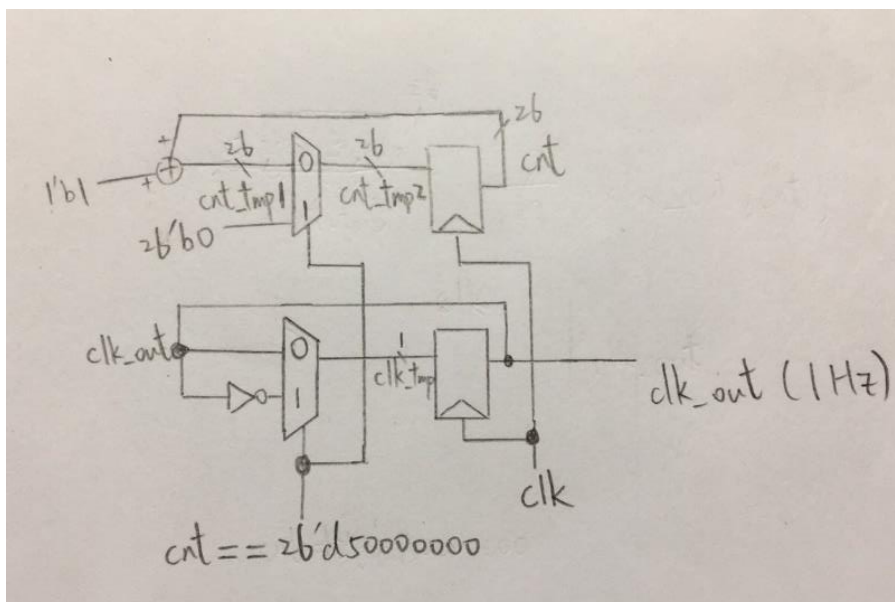 26
cnt
+
+
1'b1
26
cnt_tmp1
0
1
26
cnt_tmp2
26'b0
clk_out
0
1
1
clk_tmp
clk_out (1Hz)
clk
cnt==26'd50000000